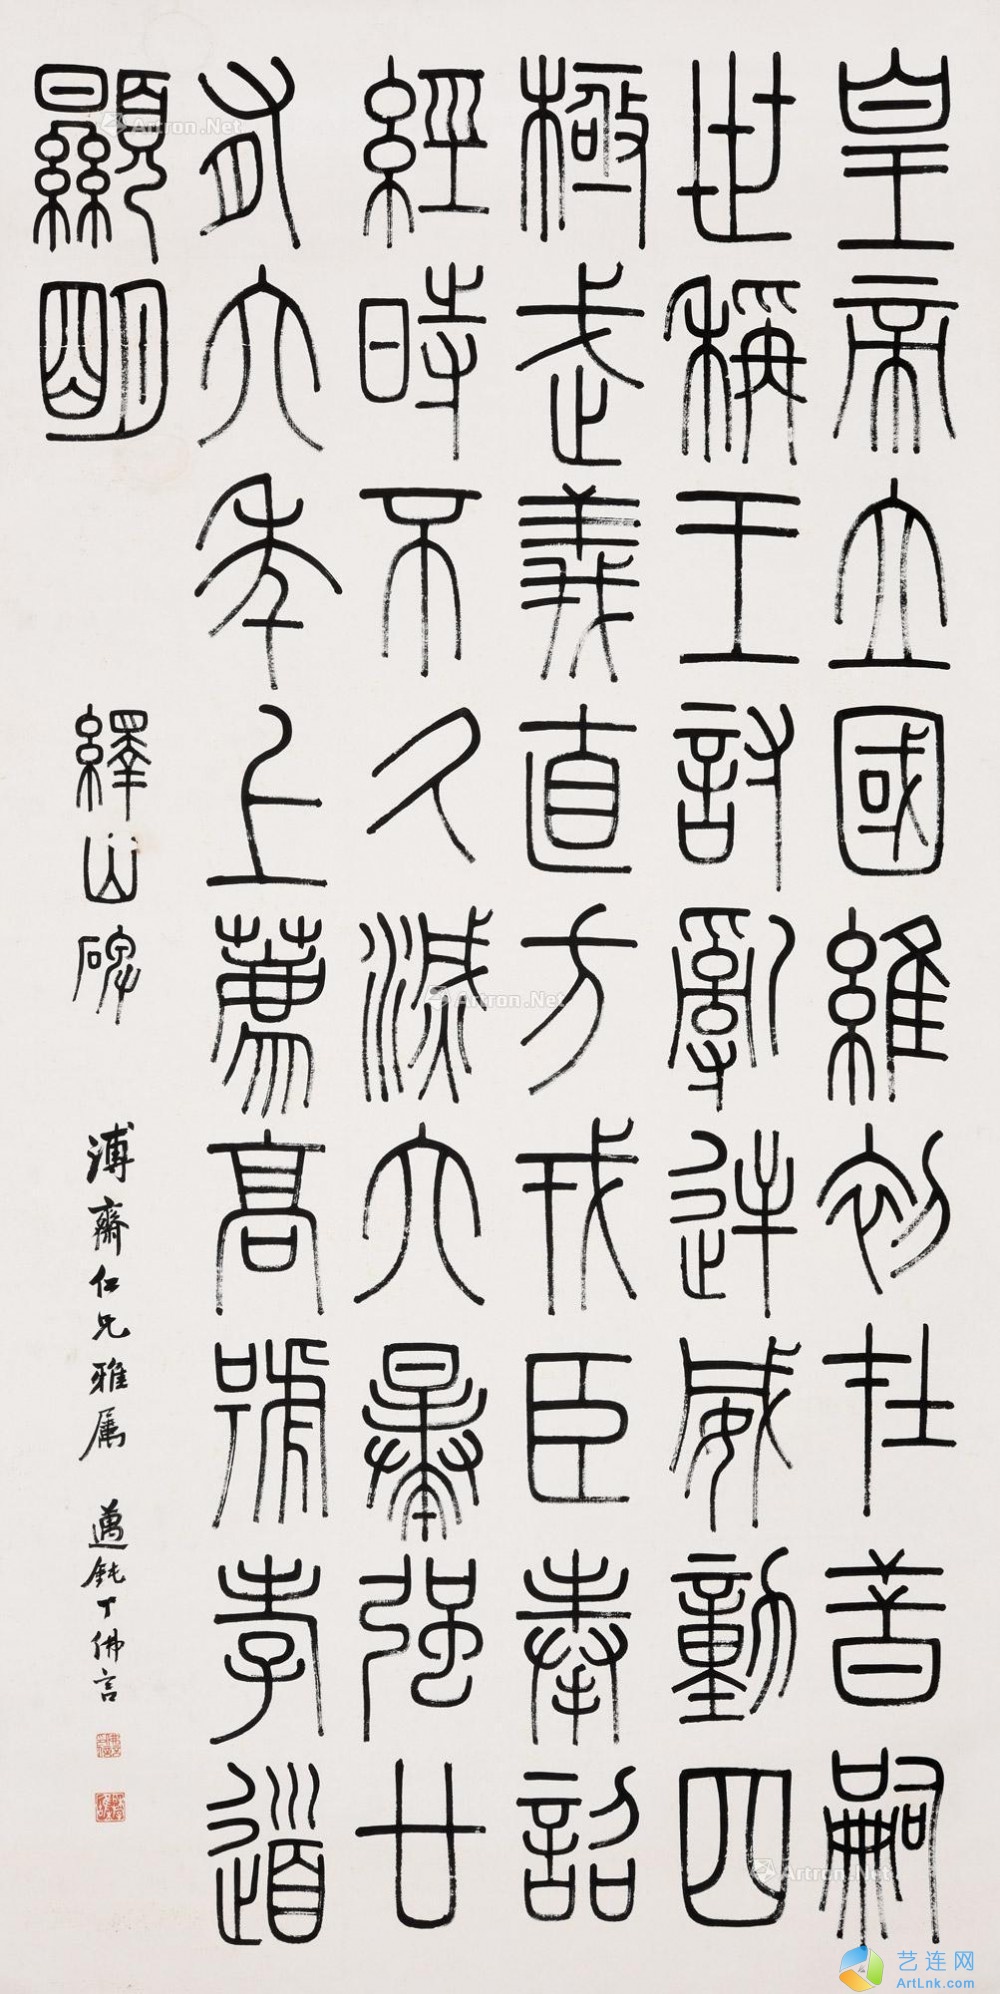 皇帝立國維初在昔嗣
世稱王討亂逆威動四
極武義直方戎臣奉詔
經時不久滅六暴強廿
有六年上薦高號孝道
顯明
繹山碑 溥齋仁兄雅属 邁鈍丁佛言
Artron.Net
Artron.Net
Artron.Net
艺连网
ArtLnk.com